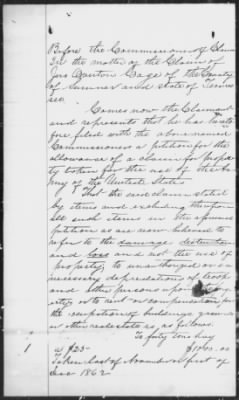 Before the Commissioners of Claims
In the matter of the Claim of
Jno Bantin Gage of the County
of Sumner and State of Tennes
see.
Comes now the Claimant
and represents that he has hereto
fore filed with the above named
Commissioners a petition for the
allowance of a claim for proper
ty taken for the use of the Ar
my of the United States
That the said claim stated
by items and excluding therefrom
all such items in the aforesaid
petition as are now believed to
refer to the damage destruction
and loss and not the use of
property; to unauthorized or un
necessary depredations by troops
and other persons upon
or to rent or compensation for
the occupation of buildings grounds
or other real estate is, as follows.
To forty tons hay
1
a $25- $1000.00
Taken last of November or first of
Dec 1862